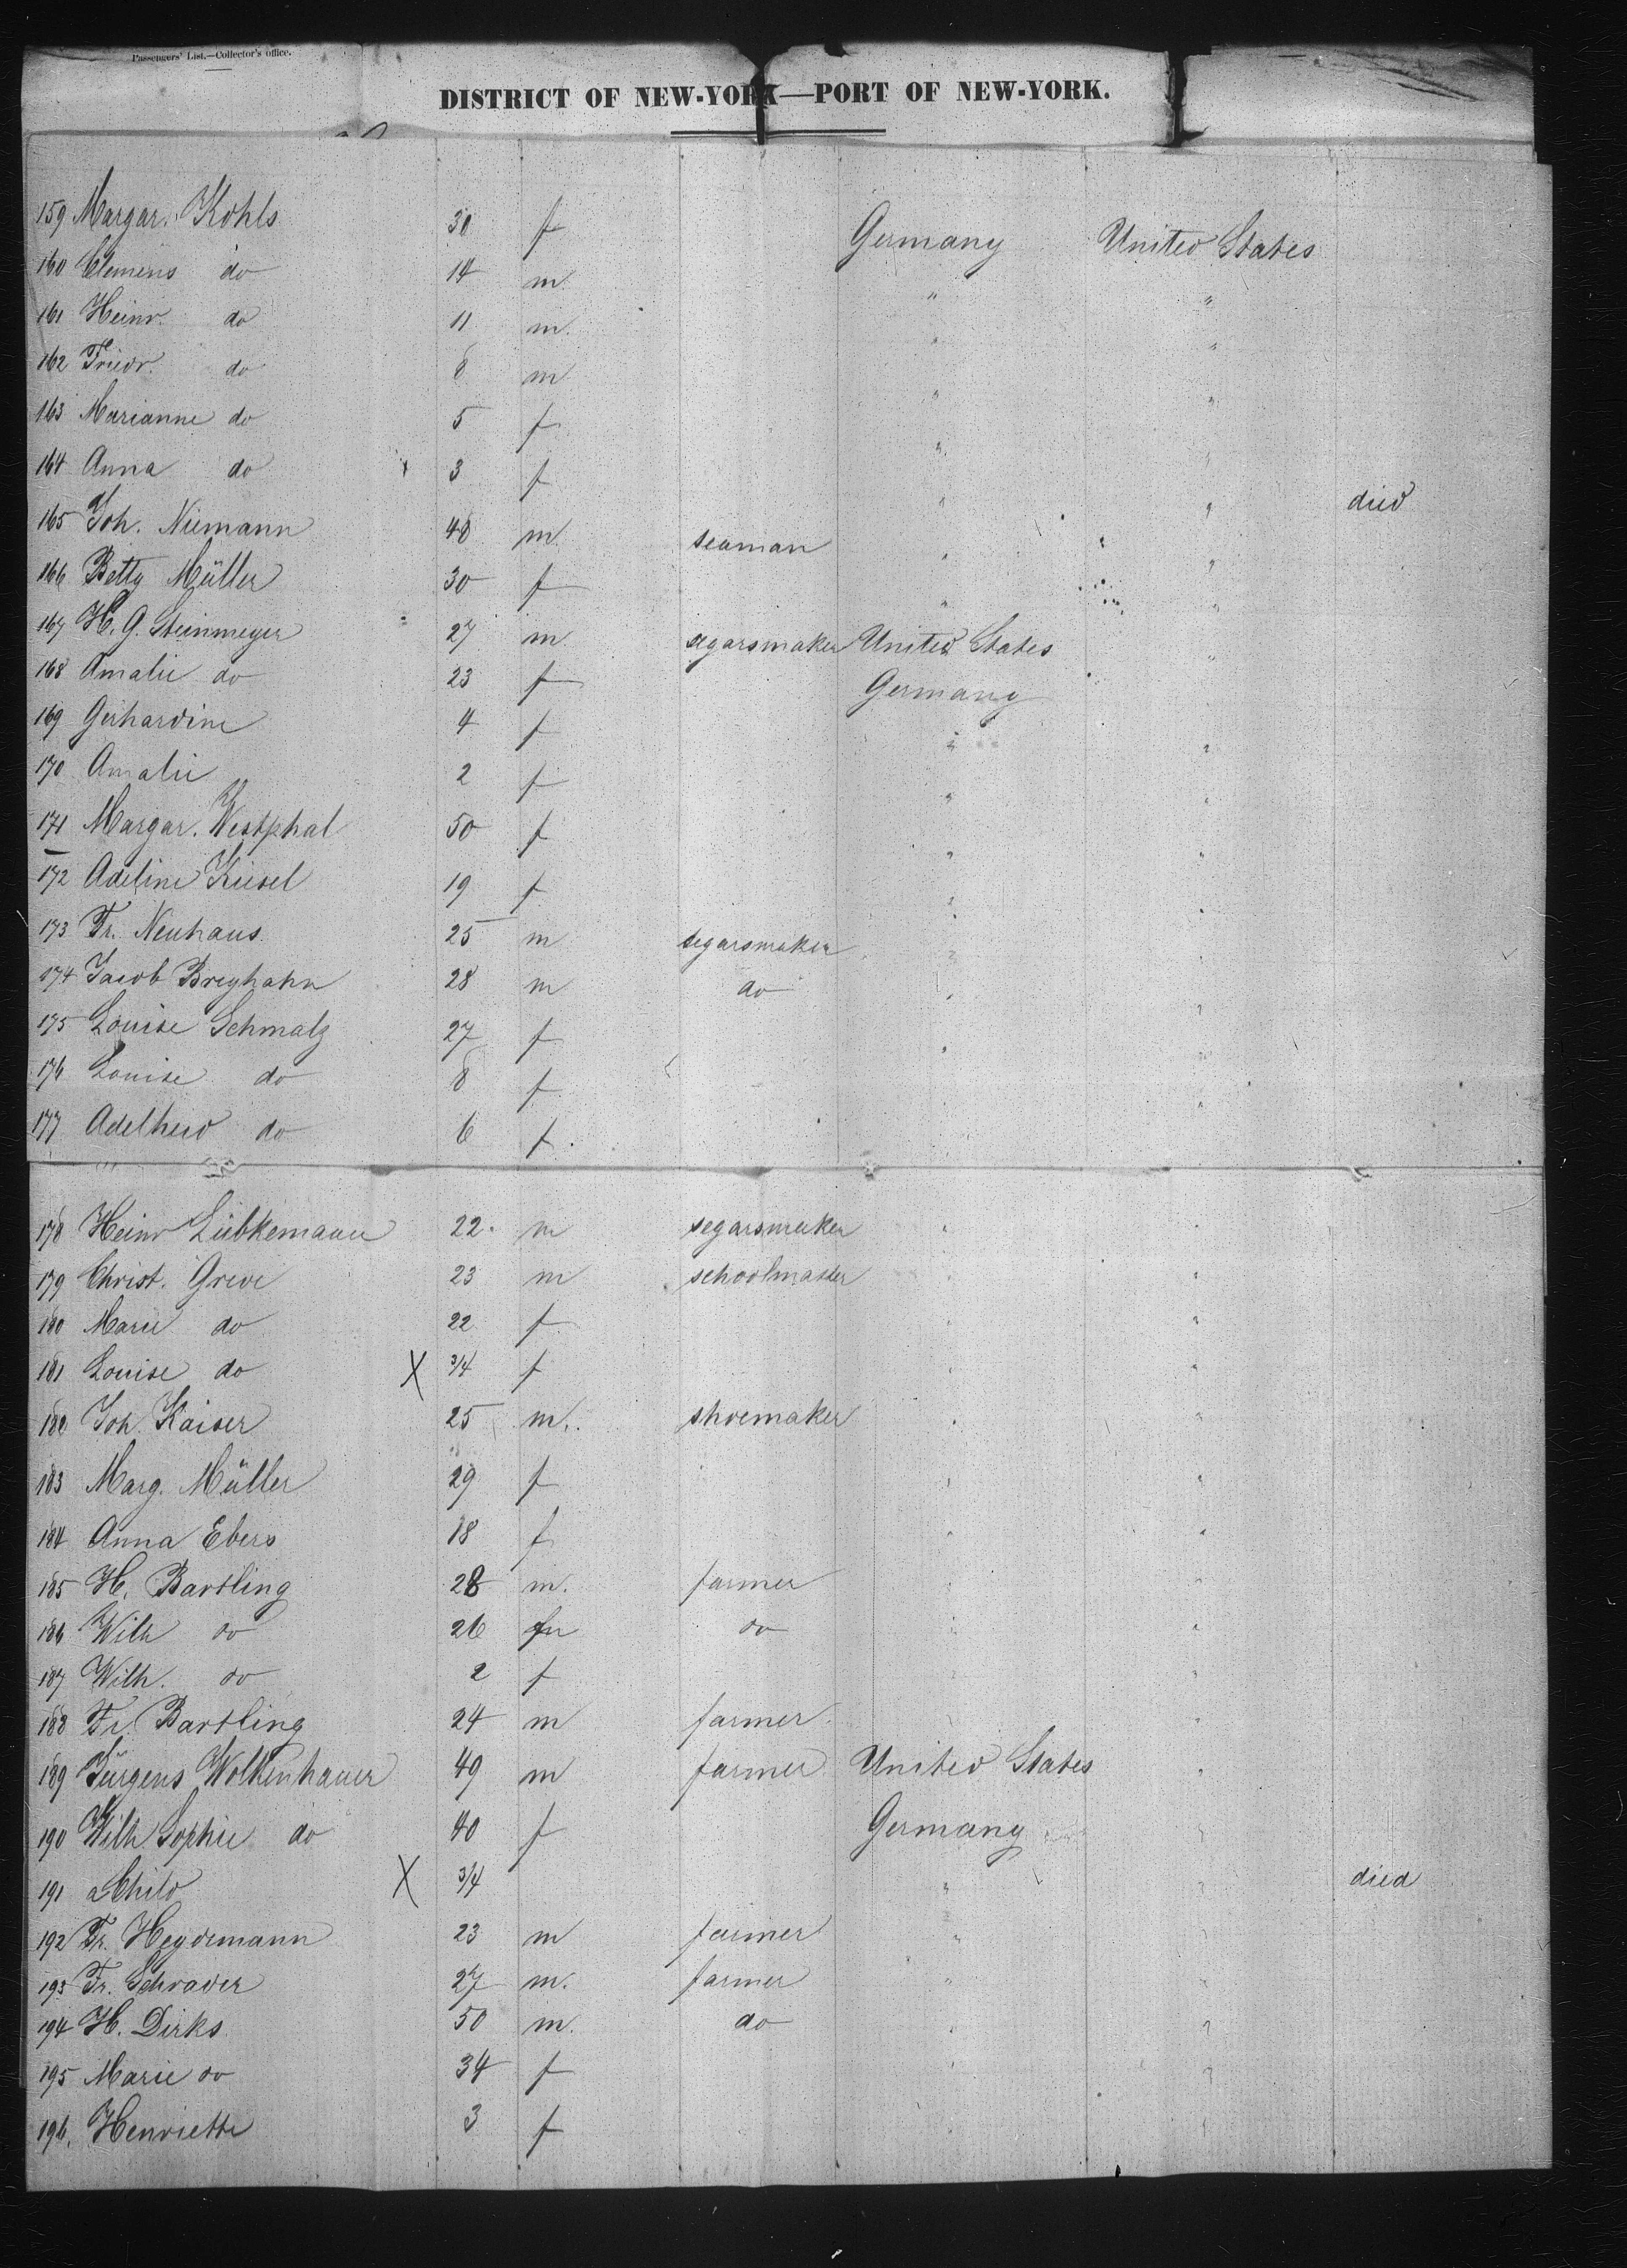 Passengers' List.—Collector's office.
DISTRICT OF NEW-YORK—PORT OF NEW-YORK.
159 Margar. Kohls 30 f Germany United States
160 Clemens do 14 m " "
161 Heinr. do 11 m. " "
162 Friedr. do 8 m " "
163 Marianne do 5 f " "
164 Anna do x 3 f " " died
165 Joh. Niemann 48 m. seaman " "
166 Betty Müller 30 f " "
167 H. G. Steinmeyer 27 m. segarsmaker United States "
168 Amalie do 23 f Germany
169 Gerhardine 4 f " "
170 Amalie 2 f " "
171 Margar. Westphal 50 f " "
172 Adeline Kiesel 19 f " "
173 Fr. Neuhaus. 25 m segarsmaker " "
174 Jacob Breyhahn 28 m do " "
175 Louise Schmalz 27 f " "
176 Louise do 8 f " "
177 Adelheid do 6 f. "
178 Heinr Lübkemann 22. m segarsmaker " "
179 Christ. Greve 23 m schoolmaster " "
180 Marie do 22 f " "
181 Louise do X 3/4 f " "
182 Joh. Kaiser 25 m. shoemaker " "
183 Marg. Müller 29 f " "
184 Anna Ebers 18 f " "
185 H. Bartling 28 m. farmer " "
186 Wilh do 26 do " "
187 Wilh. do 2 f " "
188 Fr. Bartling 24 m farmer. "
189 Jürgens Wolkenhauer 49 m farmer United States "
190 Wilh Sophie do 40 f Germany "
191 a Child X 3/4 " " died
192 Fr. Heydemann 23 m farmer " "
193 Fr. Schrader 27 m. farmer " "
194 H. Dirks 50 m. do " "
195 Marie do 34 f " "
196. Henriette 3 f "